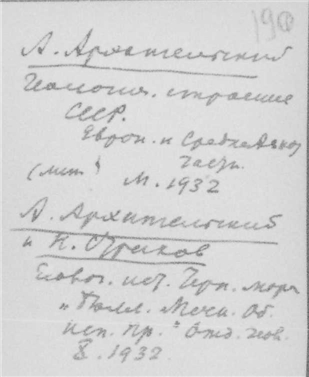 190
А. Архангельский
Геологич. строение
СССР.
Европ. и СреднеАзиат
части.
(лит.) М. 1932
А. Архангельский
и Н. Страхов
Геолог. ист. Черн. моря
„Бюлл. Моск. Об.
исп. пр.“ Отд. геол.
X. 1932